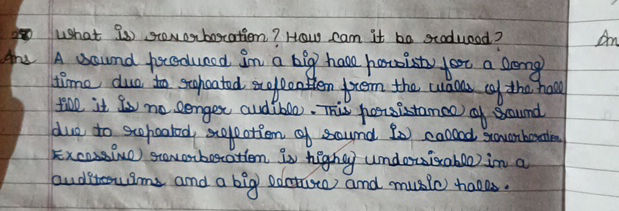 28 what is reverberation? How can it be reduced?
Ans A sound produced in a big hall persists for a long
time due to repeated reflection from the walls of the hall
till it is no longer audible. This persistance of sound
due to repeated, reflection of sound is called reverberation
Excessive reverberation is highly undersirable in a
auditoriums and a big lecture and music halls.
An